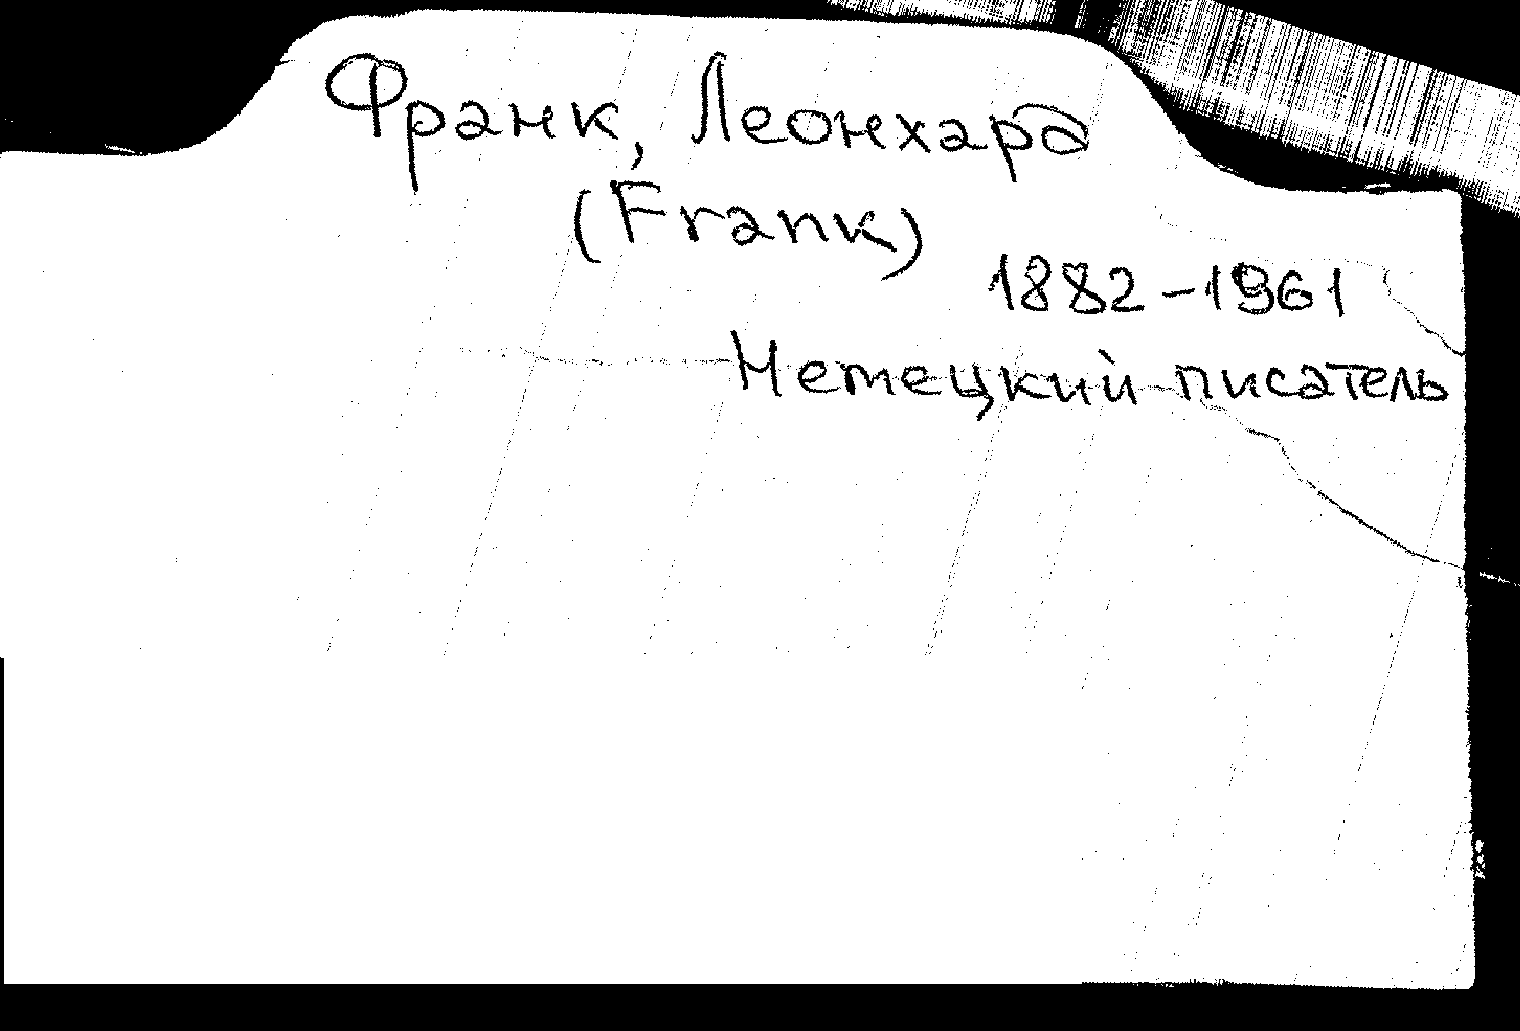 Франк, Леонхард
(Frank)
1882-1961
Немецкий писатель